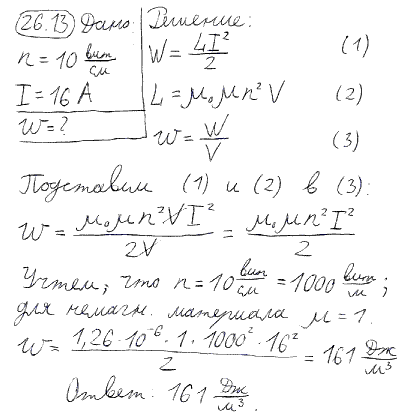 26.13 Дано: Решение:
n = 10 вит/см W = LI²/2 (1)
I = 16 А L = μ₀μn²V (2)
w = ? w = W/V (3)
Подставим (1) и (2) в (3):
w = μ₀μn²VI²/2V = μ₀μn²I²/2
Учтем, что n = 10 вит/см = 1000 вит/м ;
для немагн. материала μ = 1.
w = 1,26·10⁻⁶·1·1000²·16²/2 = 161 Дж/м³
Ответ: 161 Дж/м³.